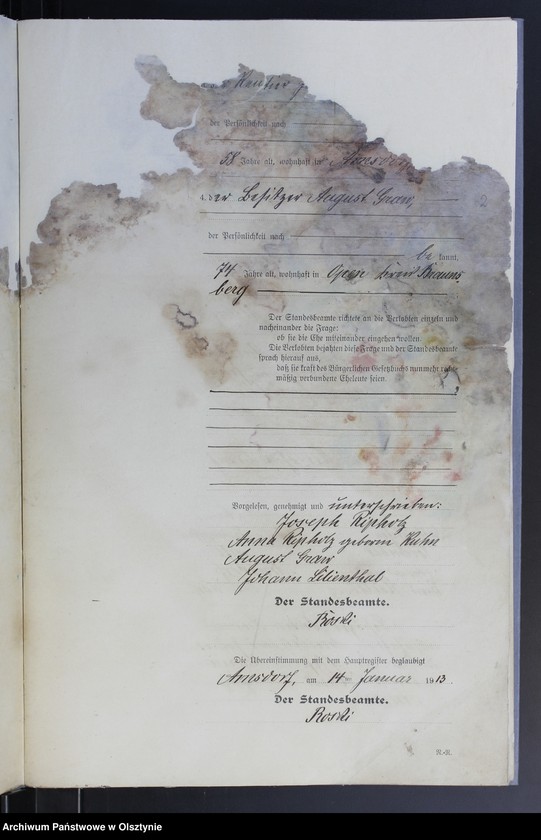 Rentier
der Persönlichkeit nach
58 Jahre alt, wohnhaft in Arnsdorf
2
4. der Besitzer August Graw,
der Persönlichkeit nach
be kannt,
74 Jahre alt, wohnhaft in Open Kreis Brauns
berg
Der Standesbeamte richtete an die Verlobten einzeln und
nacheinander die Frage:
ob sie die Ehe miteinander eingehen wollen.
Die Verlobten bejahten diese Frage und der Standesbeamte
sprach hierauf aus,
daß sie kraft des Bürgerlichen Gesetzbuchs nunmehr recht-
mäßig verbundene Eheleute seien.
Vorgelesen, genehmigt und unterschrieben:
Joseph Kipholz
Anna Kipholz geborene Kuhn
August Graw
Johann Lilienthal
Der Standesbeamte.
Roski
Die Übereinstimmung mit dem Hauptregister beglaubigt
Arnsdorf, am 14 Januar 1913.
Der Standesbeamte.
Roski
Archiwum Państwowe w Olsztynie